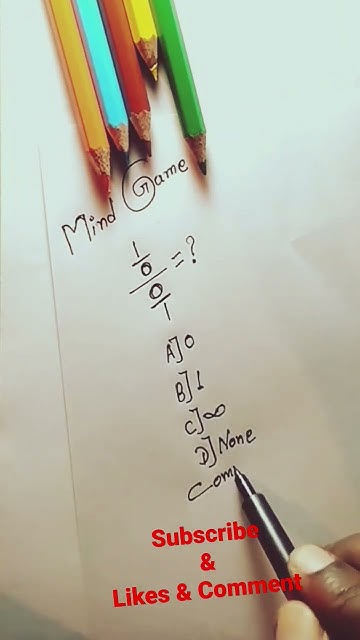 Mind Game
1
0
= ?
0
1
A] 0
B] 1
C] ∞
D] None
Com
Subscribe
&
Likes & Comment